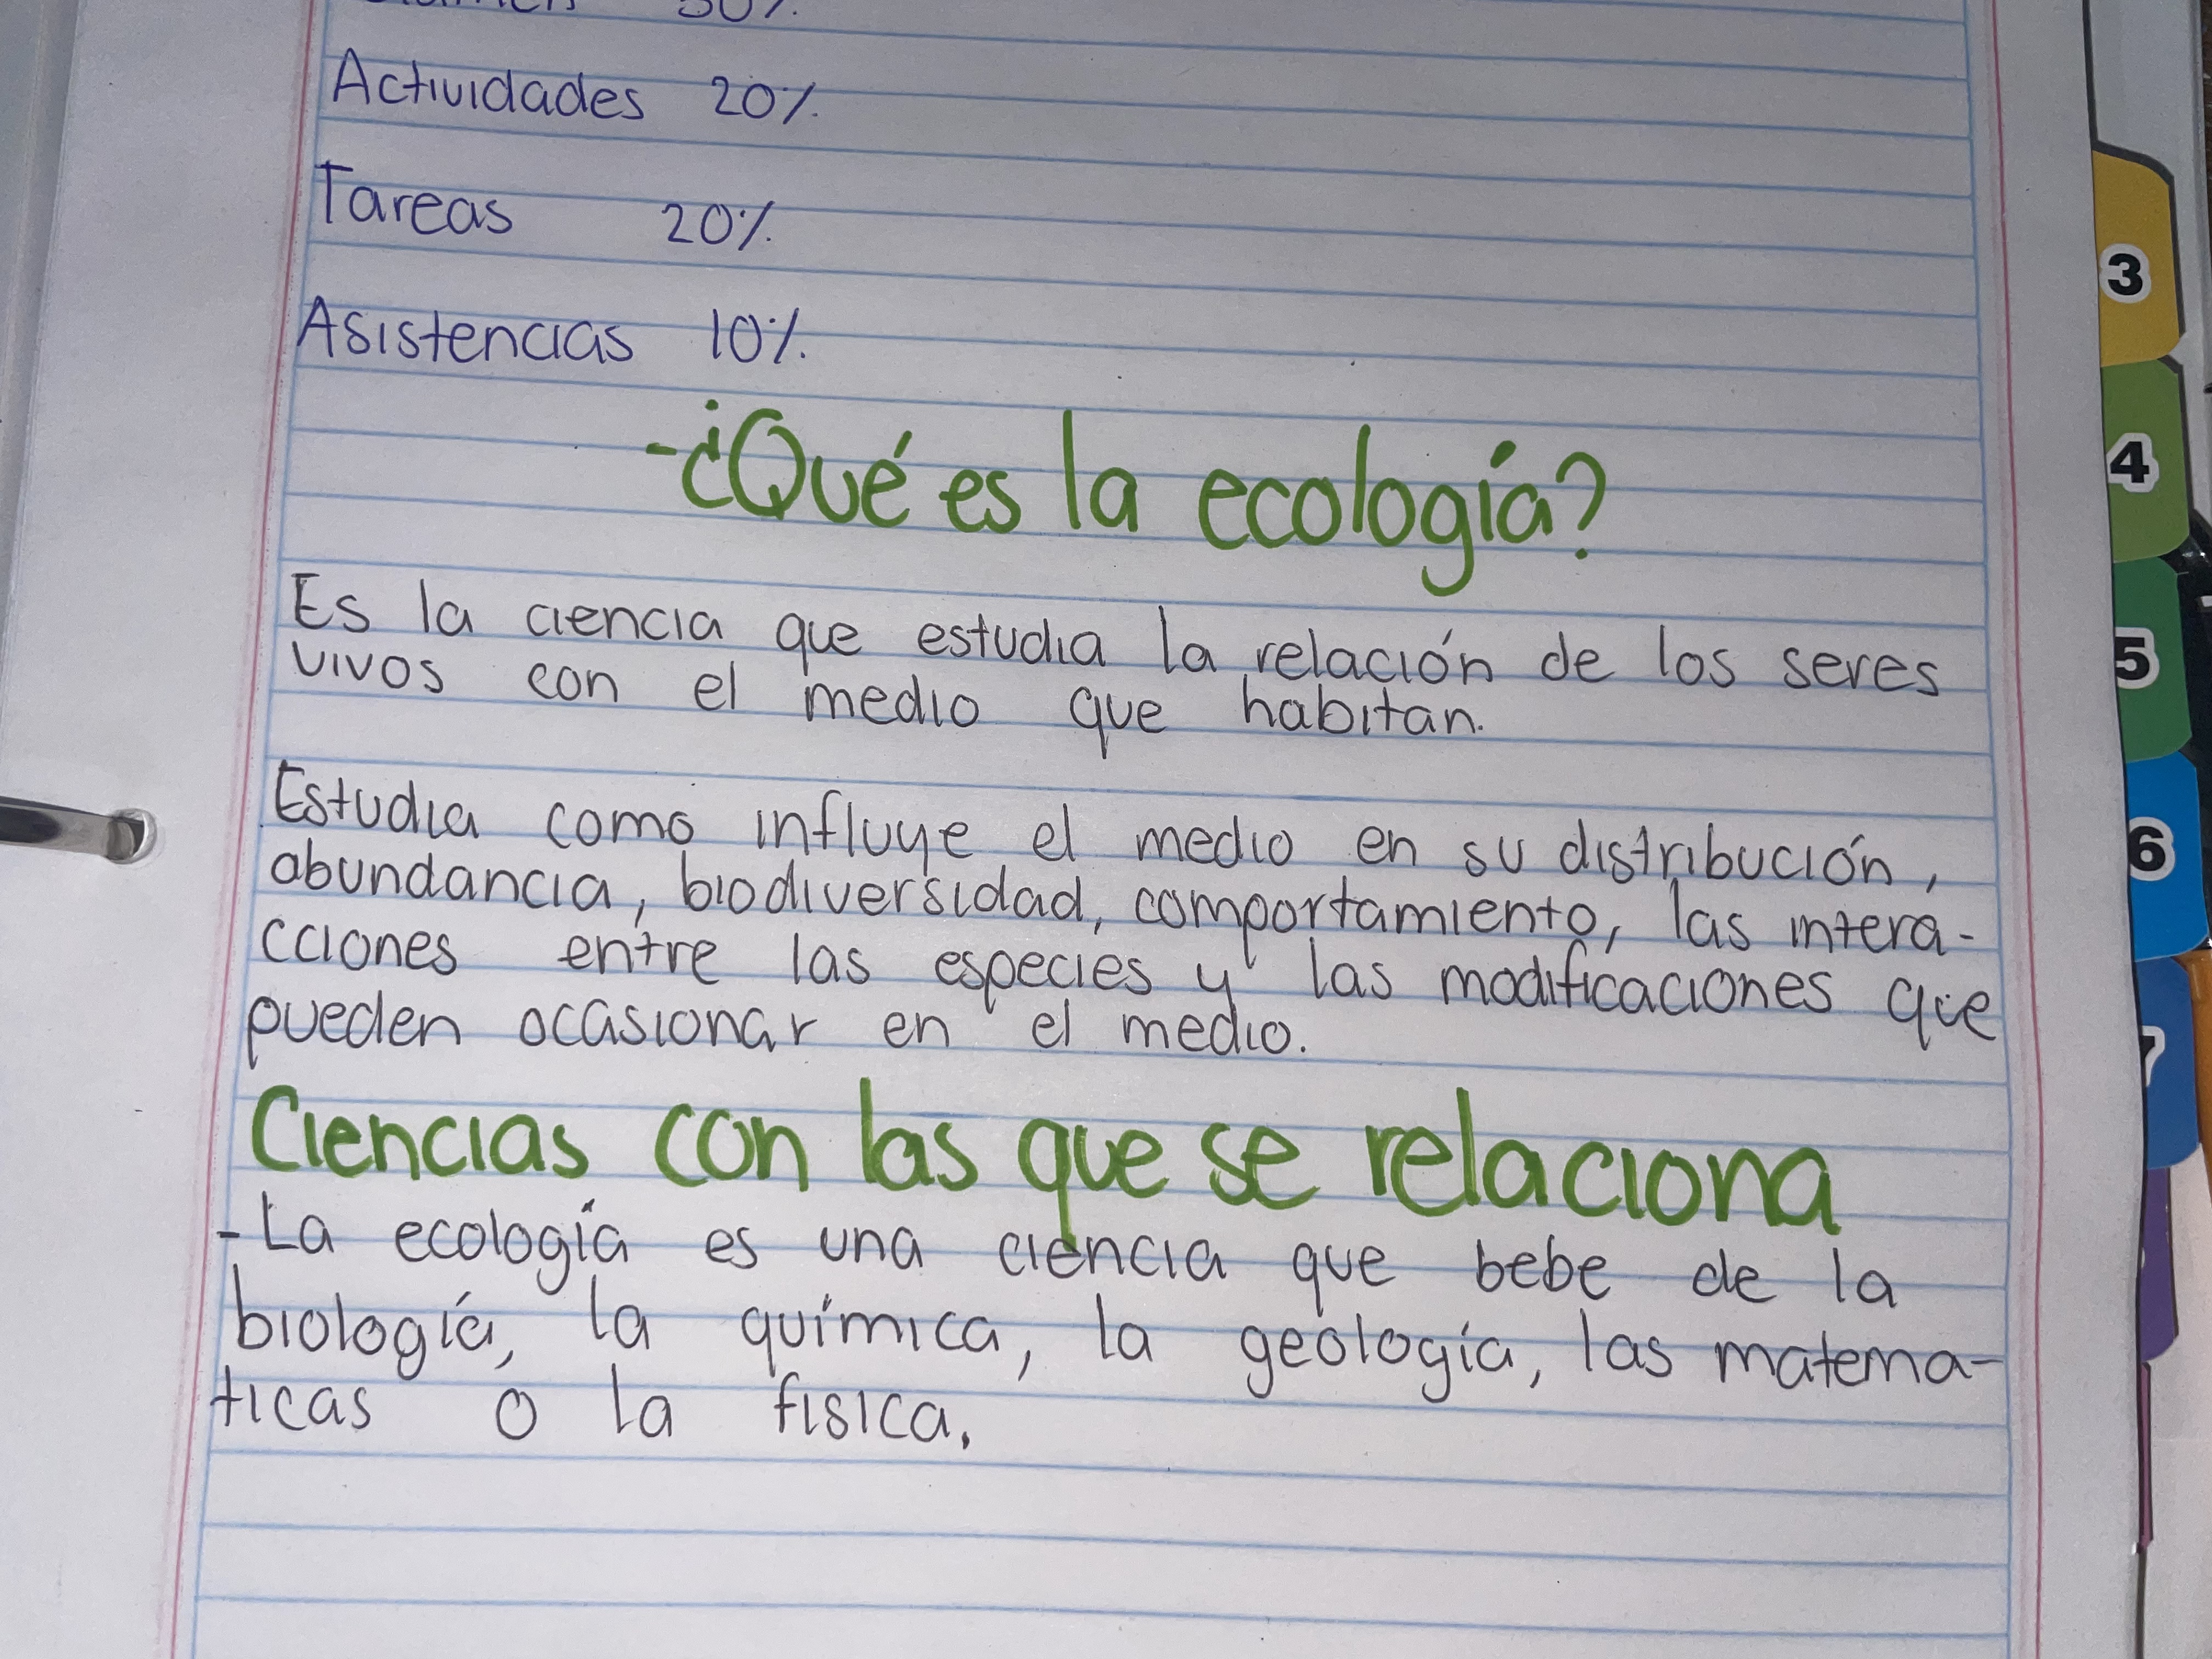 Examen 50%
Actividades 20%
Tareas 20%
Asistencias 10%
-¿Qué es la ecología?
Es la ciencia que estudia la relación de los seres
vivos con el medio que habitan.
Estudia como influye el medio en su distribución,
abundancia, biodiversidad, comportamiento, las intera-
cciones entre las especies y las modificaciones que
pueden ocasionar en el medio.
Ciencias con las que se relaciona
-La ecología es una ciencia que bebe de la
biología, la química, la geología, las matema-
ticas o la fisica.
3
4
5
6
7